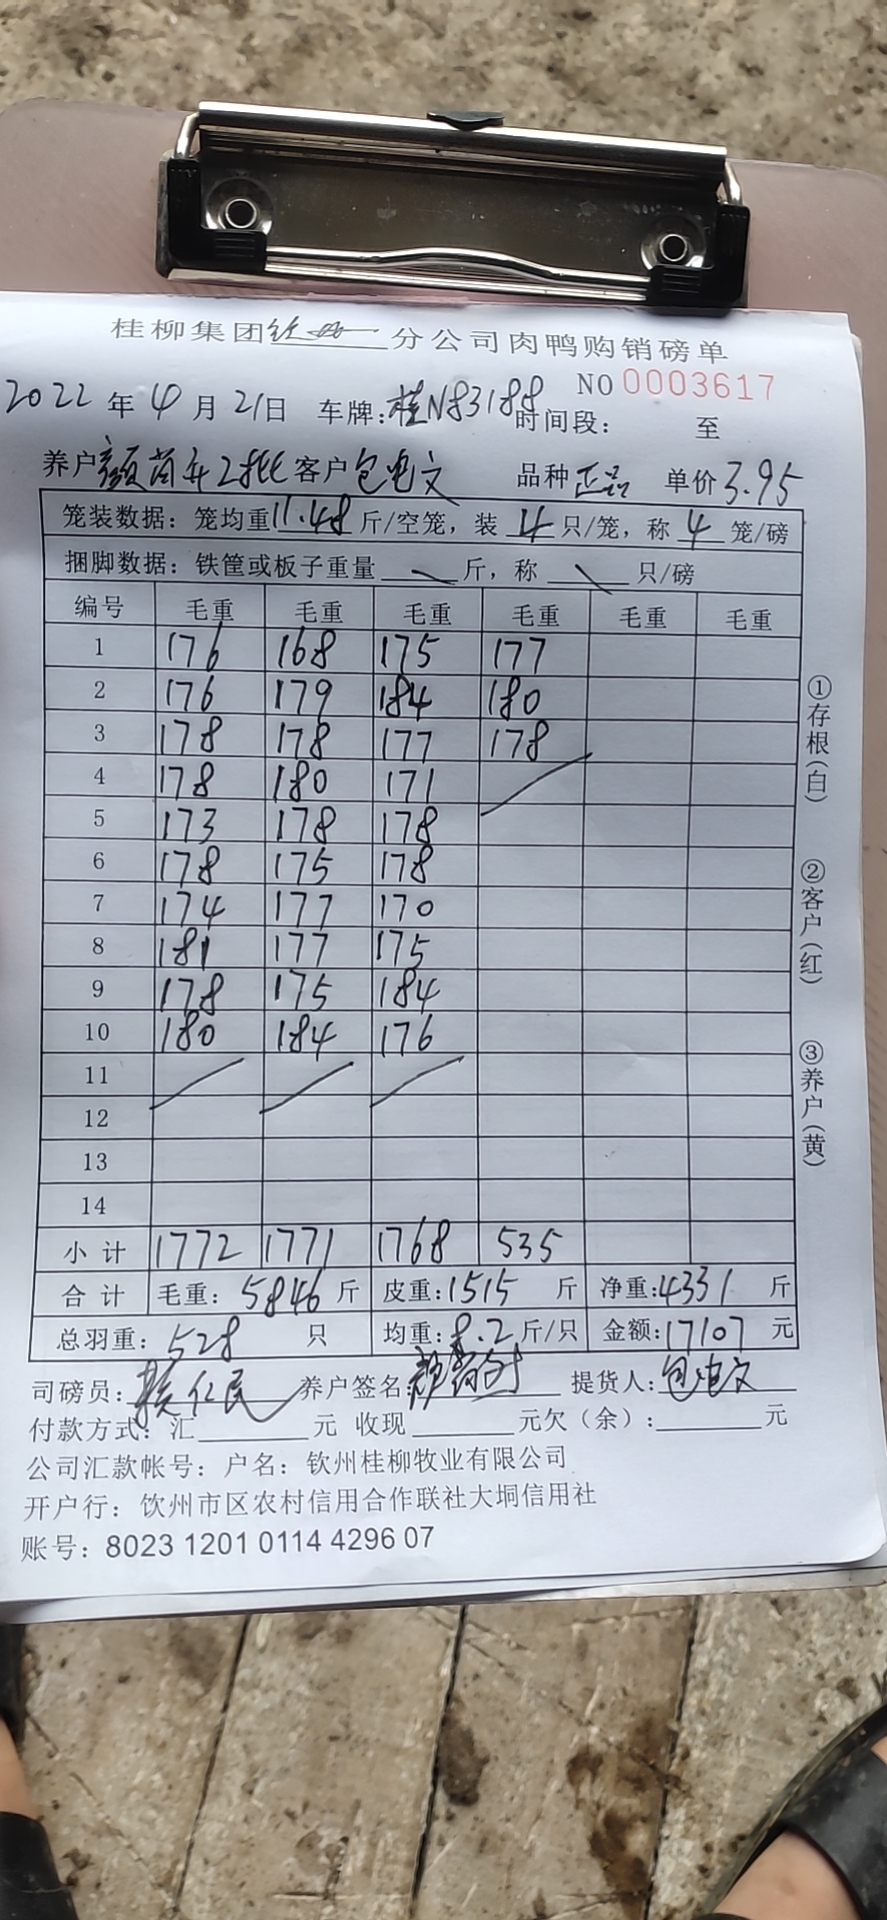 桂柳集团 分公司肉鸭购销磅单
NO 0003617
2022 年 4 月 21日 车牌:桂N83188 时间段: 至
养户 2批 客户 包电文 品种 正品 单价 3.95
笼装数据: 笼均重 11.48 斤/空笼, 装 4 只/笼, 称 4 笼/磅
捆脚数据: 铁筐或板子重量 斤, 称 只/磅
编号 毛重 毛重 毛重 毛重 毛重 毛重
1 176 168 175 177
2 176 179 184 180
3 178 178 177 178
4 178 180 171
5 173 178 178
6 178 175 178
7 174 177 170
8 181 177 175
9 178 175 184
10 180 184 176
11
12
13
14
小计 1772 1771 1768 535
合计 毛重: 5846 斤 皮重:1515 斤 净重:4331 斤
总羽重: 528 只 均重: 8.2 斤/只 金额:17107 元
司磅员: 仁民 养户签名: 提货人: 包电文
付款方式: 汇 元 收现 元欠(余): 元
公司汇款帐号: 户名: 钦州桂柳牧业有限公司
开户行: 饮州市区农村信用合作联社大垌信用社
账号: 8023 1201 0114 4296 07
①存根(白)
②客户(红)
③养户(黄)